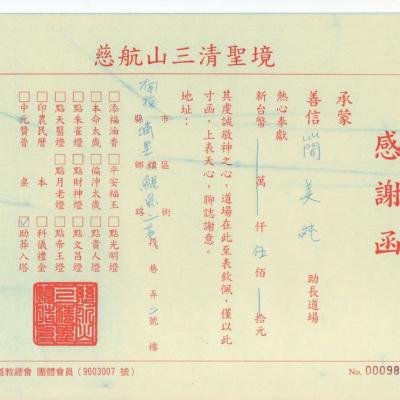 慈航山三清聖境
感謝函
承蒙
善信 簡美純 助長道場
熱心奉獻
新台幣 萬 仟 伍 佰 拾元
其虔誠敬神之心，道場在此至表欽佩，僅以此
寸函，上表天心，聊誌謝意。
地址：
南投 縣市 埔里 鄉鎮區 路街 段 巷 弄 二 號 樓
□添福油香 □平安福玉 □點光明燈
□本命太歲 □偏沖太歲 □點貴人燈
□點朱雀燈 □點財神燈 □點文昌燈
□點天醫燈 □點月老燈 □點帝王燈
□印農民曆 本 □科儀禮金
□中元贊普 桌 ☑助葬入塔
道教總會 團體會員（9603007 號）
No. 00098